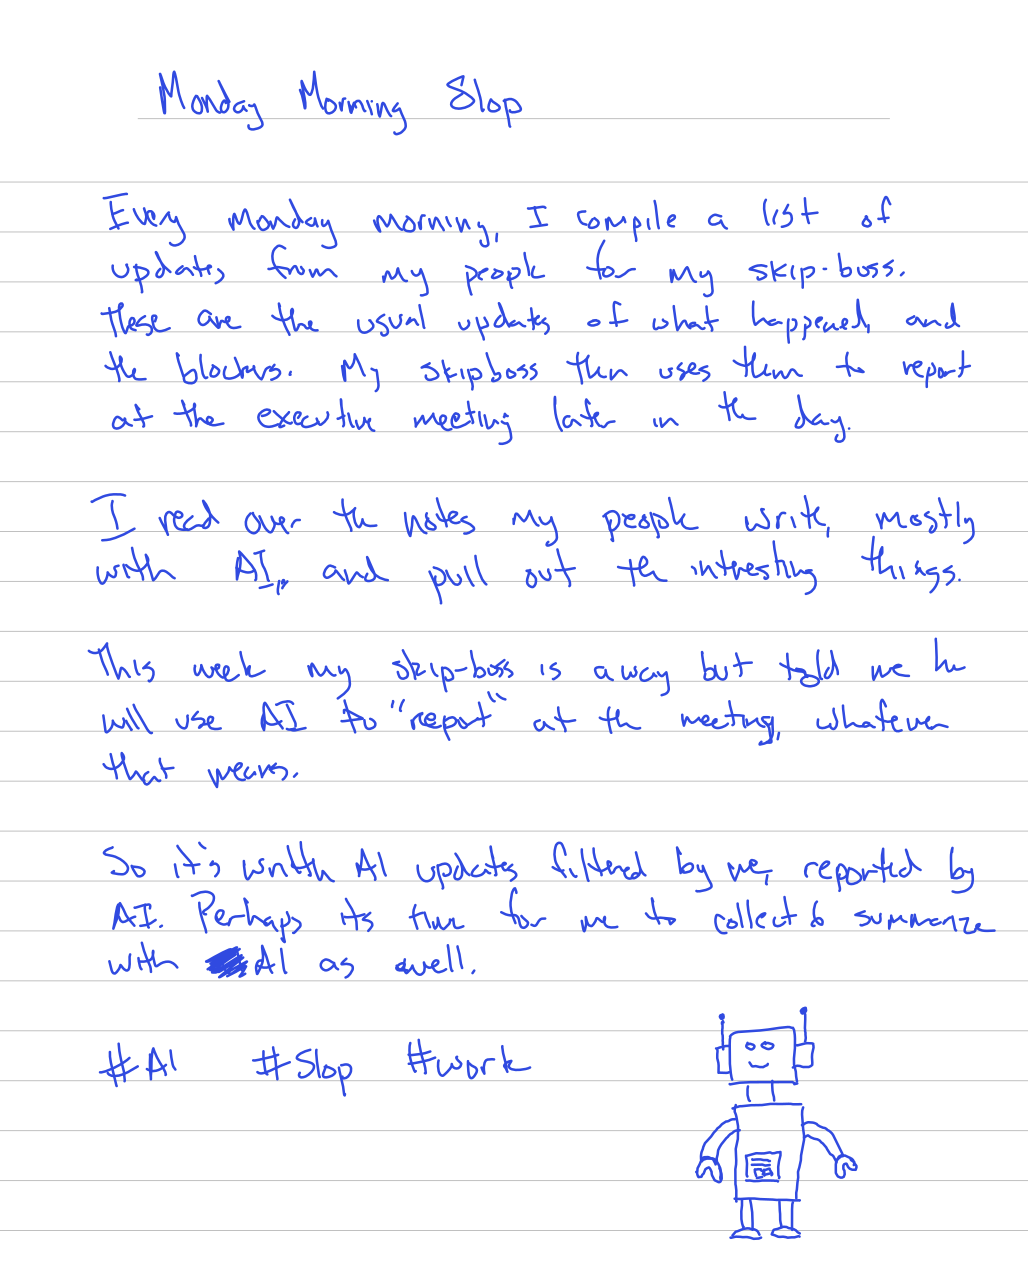 Monday Morning Slop
Every Monday morning, I compile a list of
updates from my people for my skip-boss.
These are the usual updates of what happened, and
the blockers. My skipboss then uses them to report
at the executive meeting later in the day.
I read over the notes my people write, mostly
with AI, and pull out the interesting things.
This week my skip-boss is away but told me he
will use AI to "report" at the meeting, whatever
that means.
So it's written AI updates filtered by me, reported by
AI. Perhaps its time for me to collect & summarize
with AI as well.
#AI #Slop #work